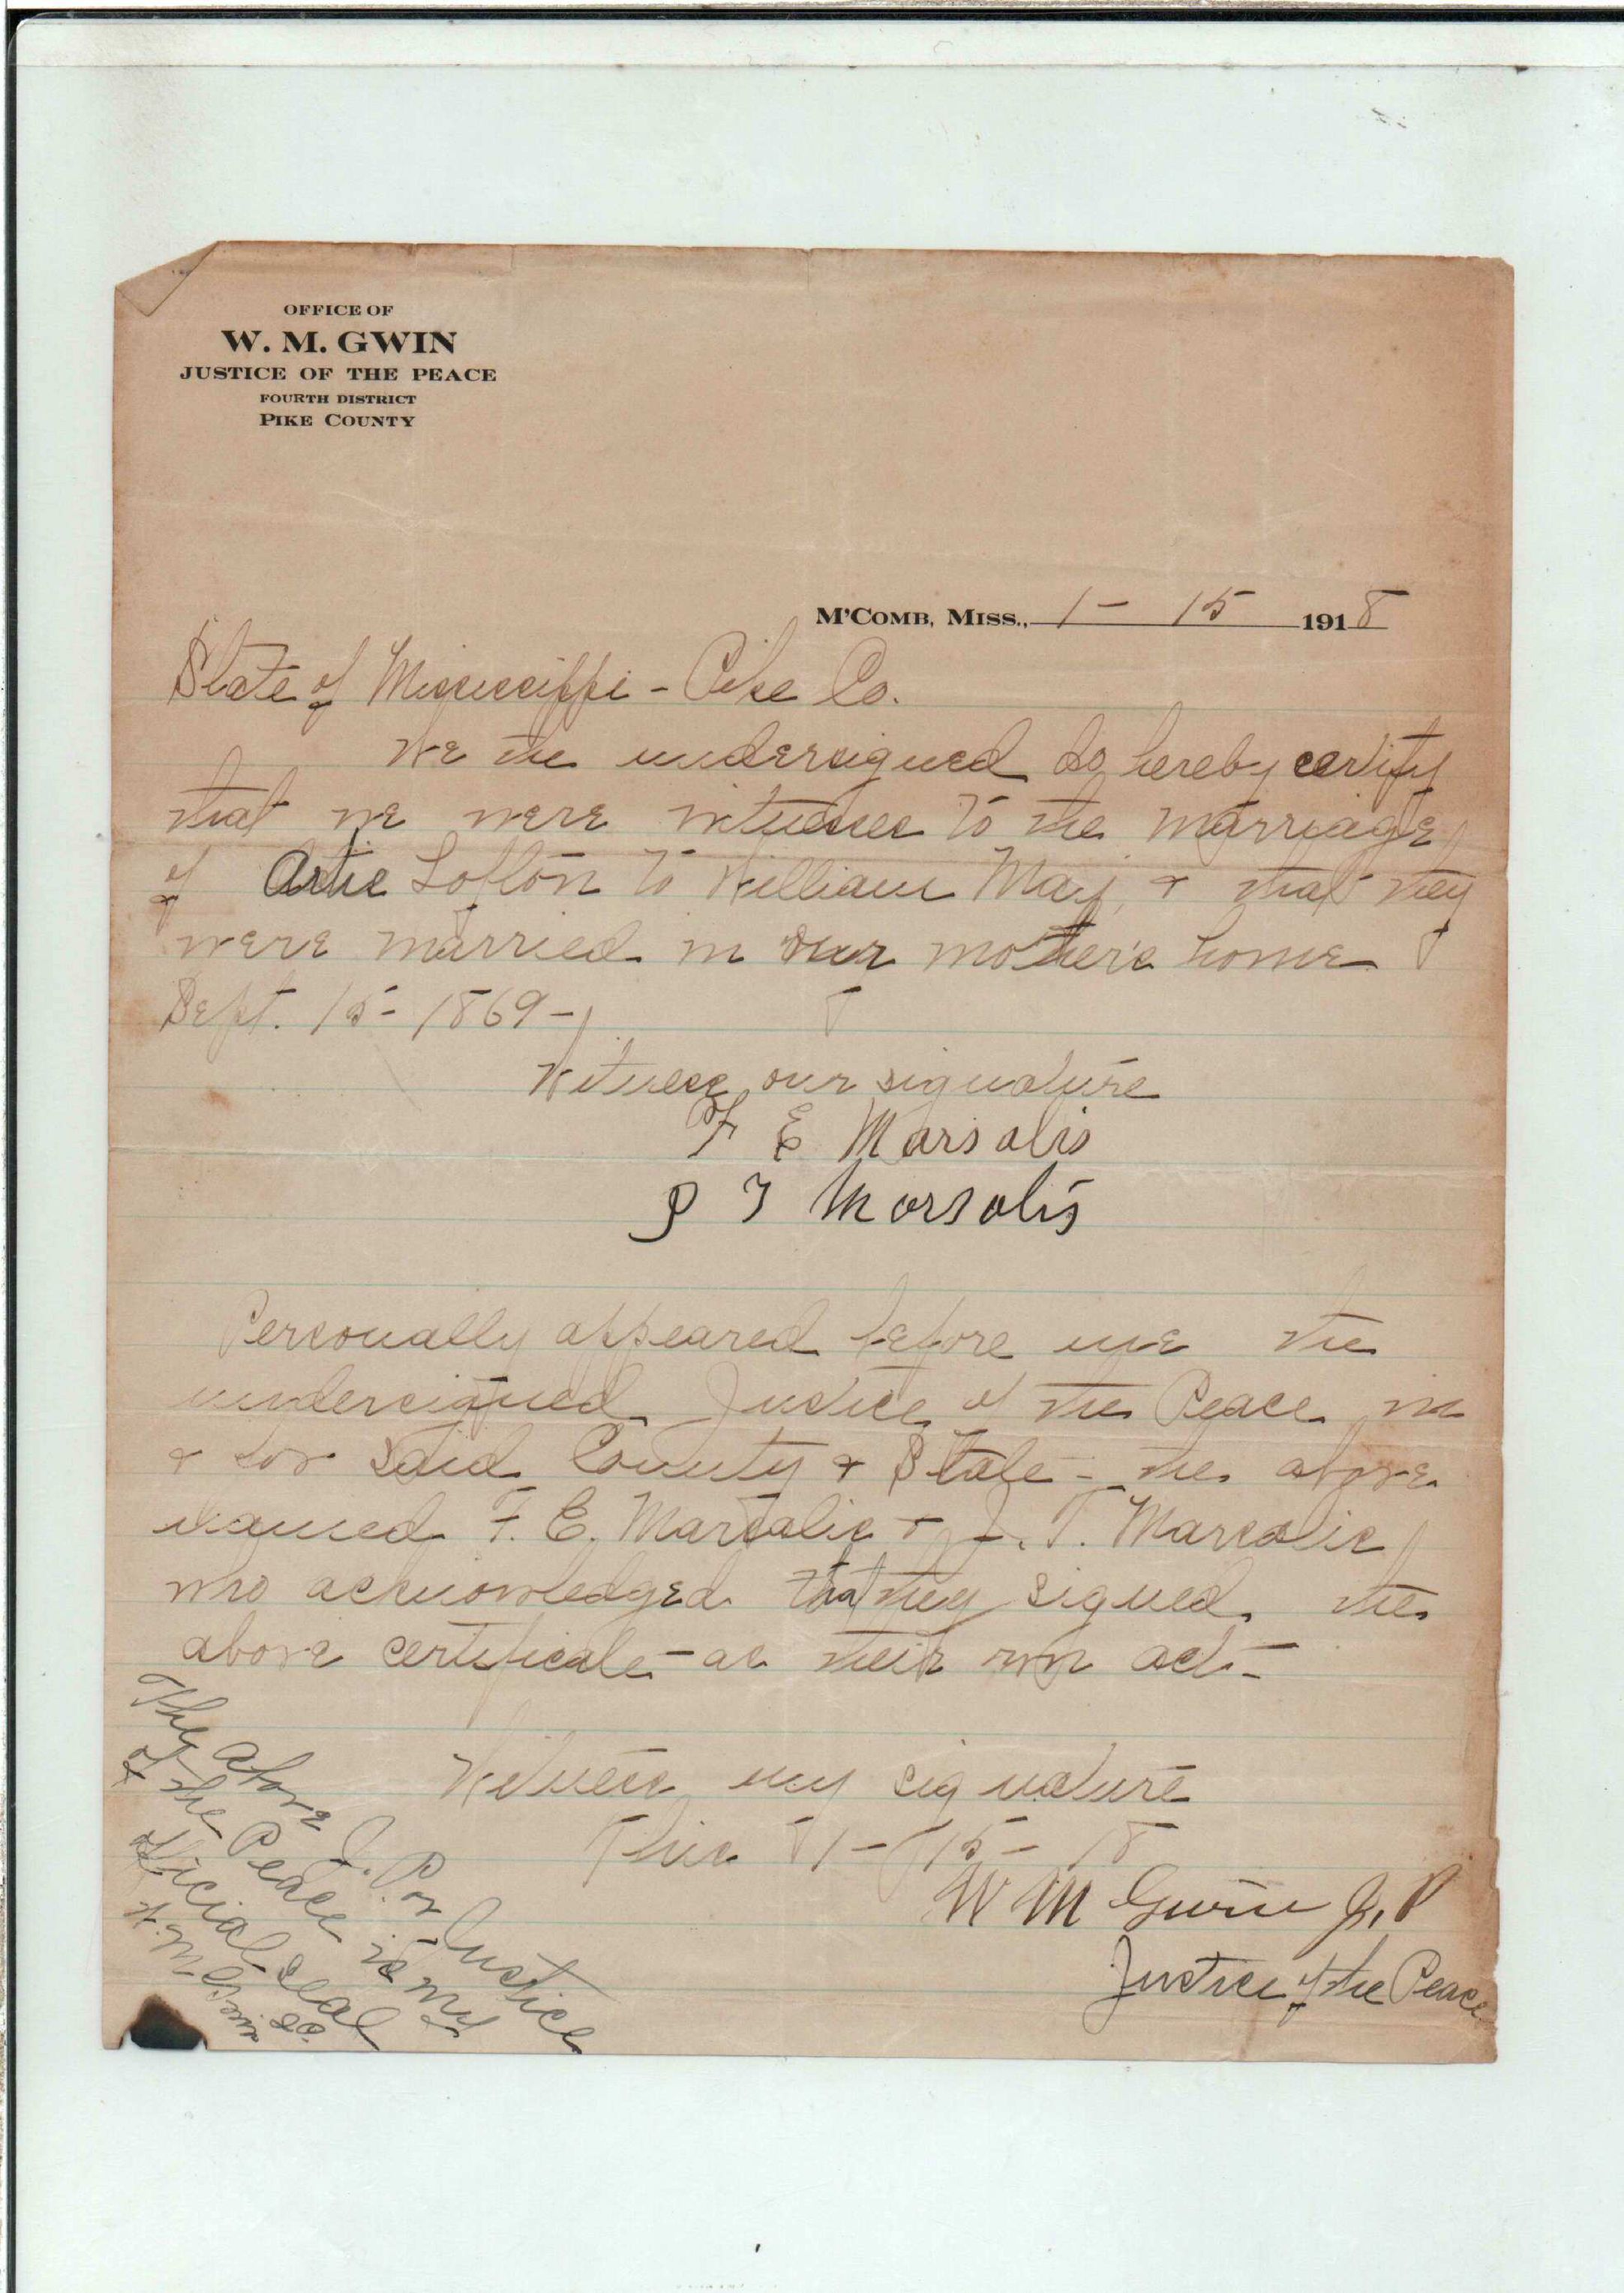 OFFICE OF
W. M. GWIN
JUSTICE OF THE PEACE
FOURTH DISTRICT
PIKE COUNTY
M'COMB, MISS., 1 - 15 1918
State of Mississippi - Pike Co.
We the undersigned do hereby certify
that we were witnesses to the marriage
of Artie Lofton to William May, & that they
were married in our mother's home
Sept. 15 - 1869 -
Witness our signature
F E Marsalis
J T Marsalis
Personally appeared before me the
undersigned Justice of the Peace in
& for said County & State - the above
named F. E. Marsalis & J. T. Marsalis
who acknowledged that they signed the
above certificate - as their own act -
Witness my signature
This 1 - 15 - 18
W M Gwin J. P
Justice of the Peace
The above J. P. or Justice
of the Peace is my
official seal
W. M. Gwin